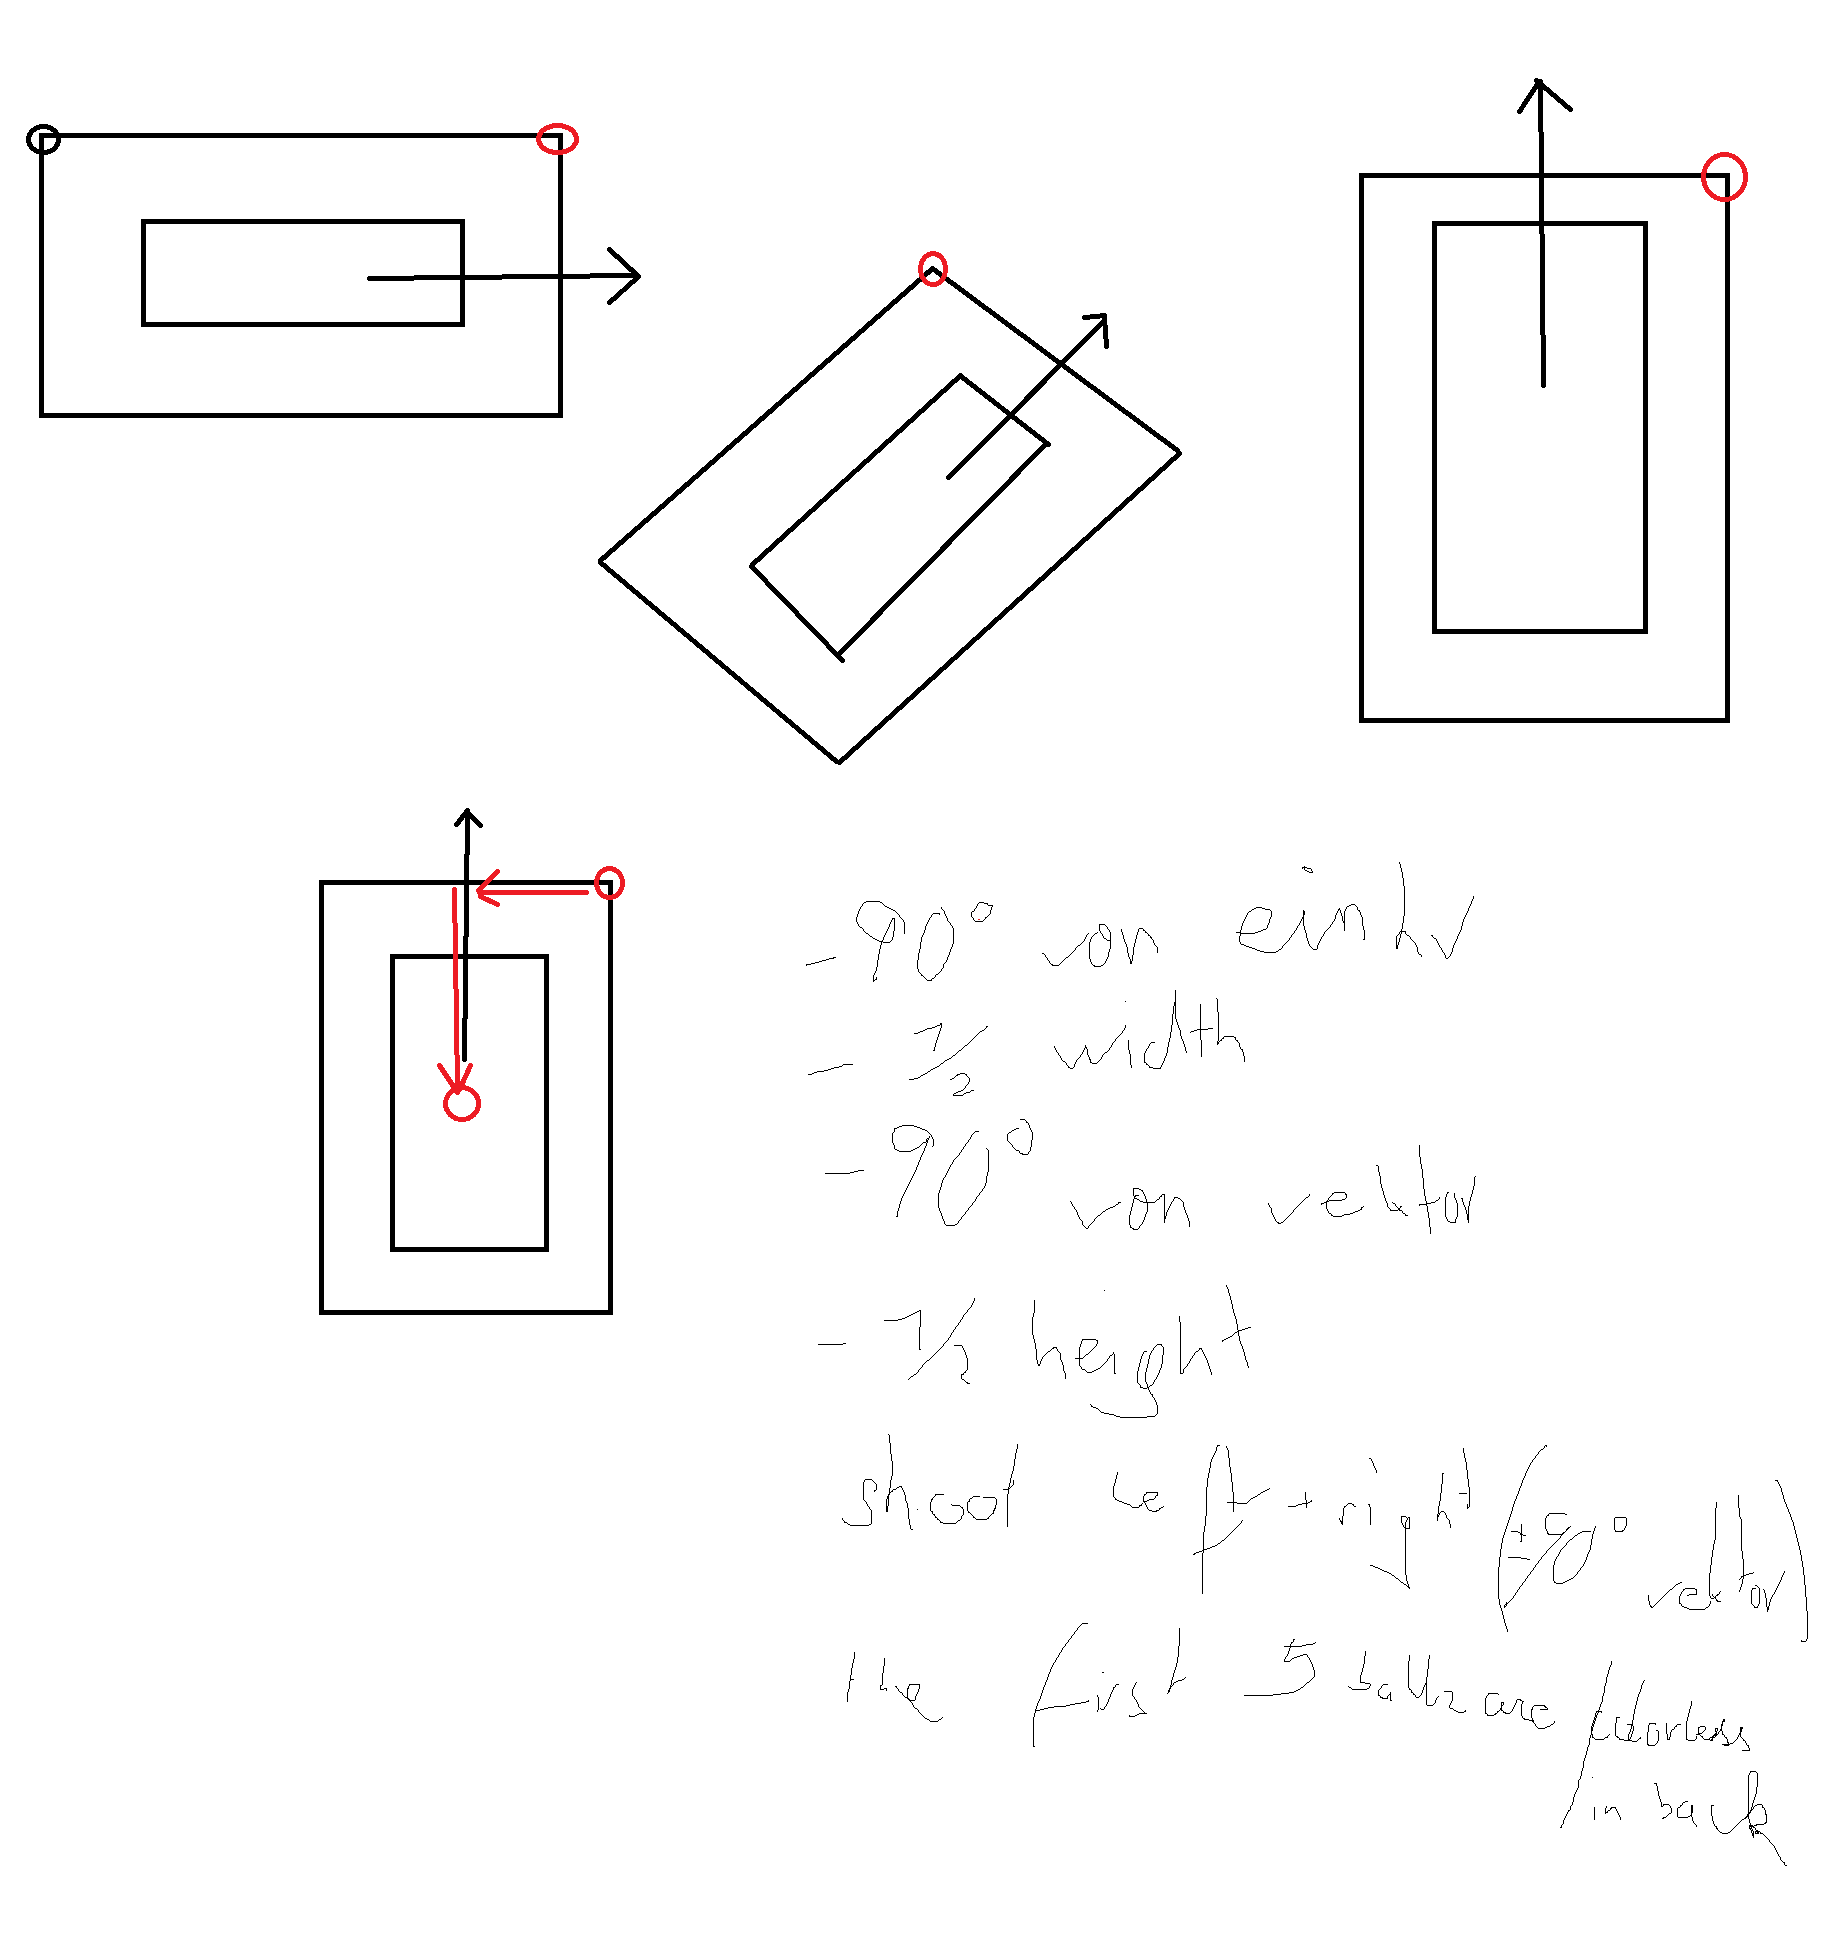 - 90° von einhv
- 1/2 width
- 90° von vektor
- 1/2 height
shoot left + right (± 90° vektor)
the first 5 balls are / colorless
in back